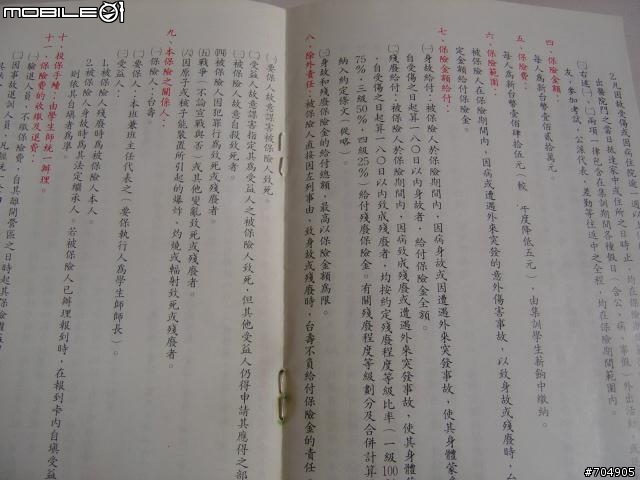 MOBILE01
2.凡因故受傷或因病住院
出醫院門之當日抵達家中或住所之日時止,均在
㈢右述㈠、㈡兩項,一律包含在集訓期間各種假日(含、病、事假)外出活動
友、參加考試,公派代表、差勤等往返途中之全程,均在保險期間範圍內。
四、保險金額:
每人為新台幣壹百貳拾萬元。
五、保險費:
每人為新台幣壹佰肆拾伍元(較 年度降低五元),由集訓學生薪餉中繳納。
六、保險範圍:
被保險人在保險期間內,因病或遭遇外來突發的意外傷害事故,以致身故或殘廢時,台
定金額給付保險金。
七、保險金額給付:
㈠身故給付:被保險人於保險期間內,因病身故或因遭遇外來突發事故,使其身體蒙
自受傷之日起算一八○日以內身故者,給付保險金全額。
㈡殘廢給付:被保險人於保險期間內,因病致成殘廢或遭遇外來突發事故,使其身體
自受傷之日起算一八○日以內致成殘廢者,均按約定殘廢程度等級比率(一級100
75%,三級50%,四級25%)給付殘廢保險金。有關殘廢程度等級劃分及合併計算
納入約定條文(從略)。
㈢身故和殘廢保險金的給付總額,最高以保險金額為限。
八、除外責任:被保險人直接因左列事由,致身故或殘廢時,台壽不負給付保險金的責任
㈠要保人故意謀害被保險人致死
㈡受益人故意謀害指定其為受益人之被保險人致死,但其他受益人仍得申請其應得之部
㈢被保險人故意自殺致死者。
㈣被保險人因犯罪行為致死或殘廢者。
㈤戰爭(不論宣戰與否)或其他變亂致死或殘廢者。
㈥因原子或核子能裝置所引起的爆炸,灼燒或輻射致死或殘廢者。
九、本保險之關係人:
㈠保險人:台壽
㈡要保人:本班兼班主任代表之(要保執行人為學生師師長)。
㈢受益人:
1.被保險人殘廢時為被保險人本人。
2.被保險人身故時為其法定繼承人。若被保險人已辦理報到時,在報到卡內自填受益
則依其自填者為準。
十、投保手續:由學生師統一辦理。
十一、保險費的收繳及退費:
㈠驗退人員,不繳保險費,自其離開營區之日時起其保險
㈡因事故退訓人員,凡
#704905